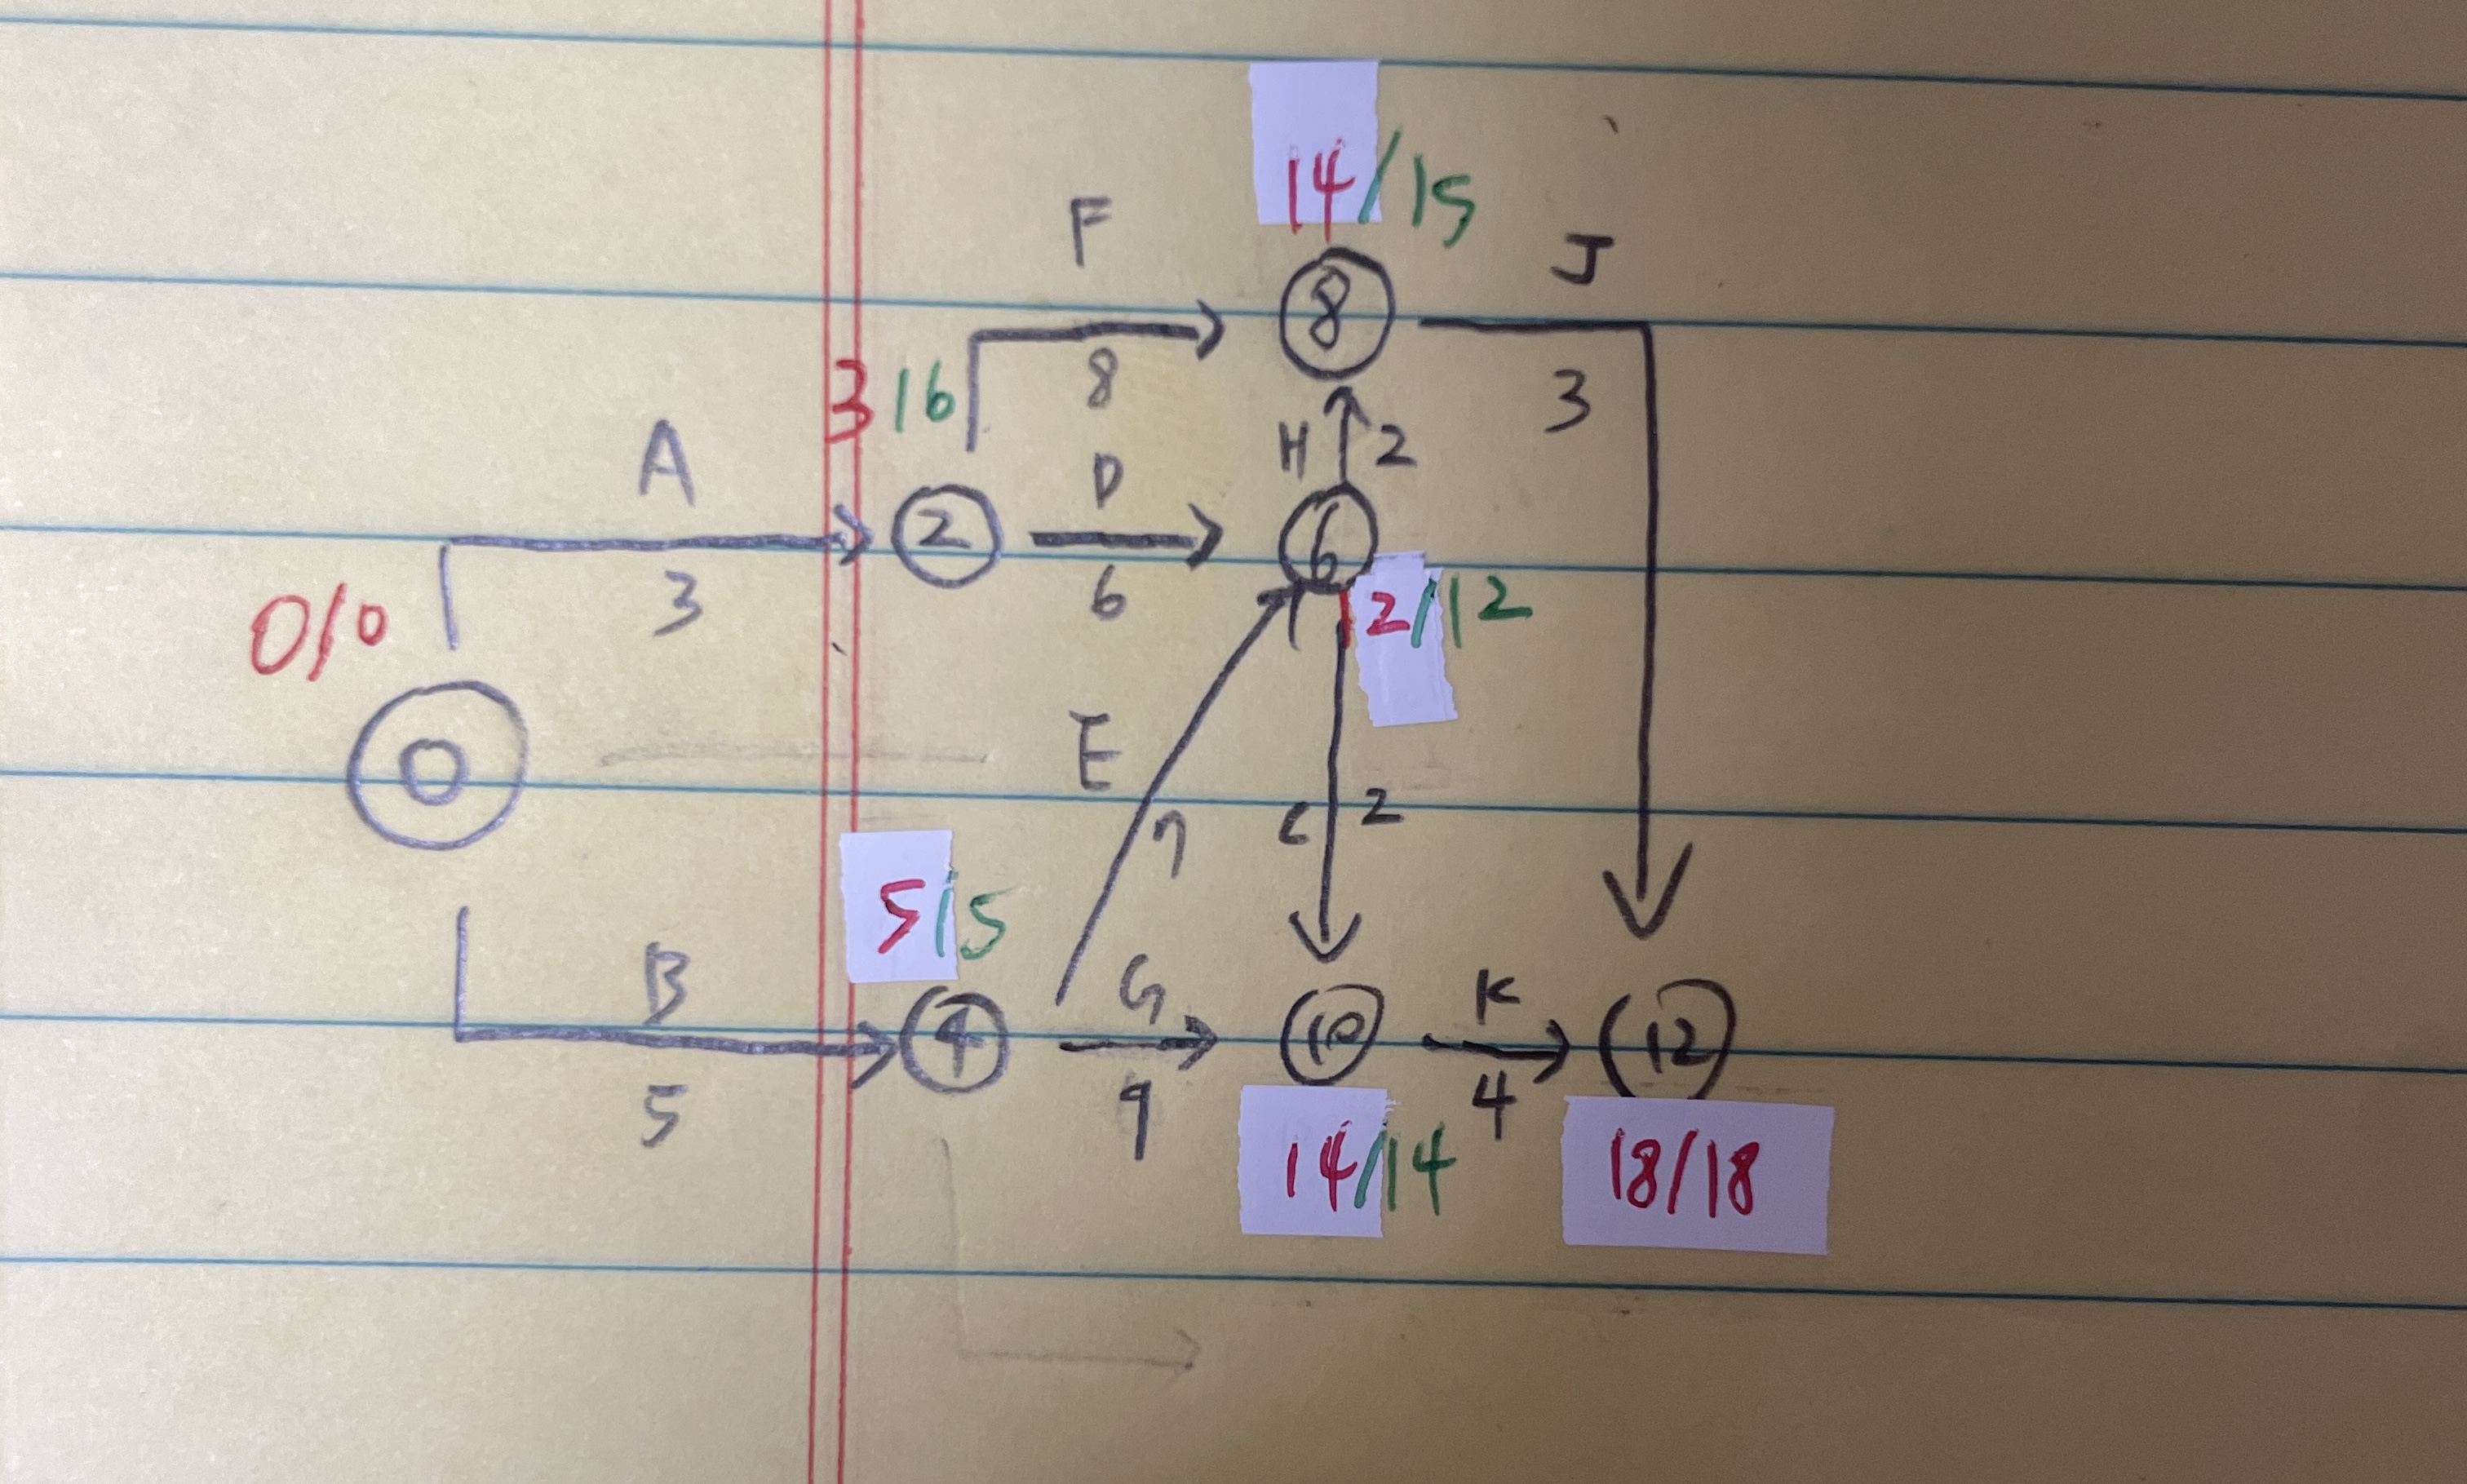 14/15
F
J
8
8
3
3/6
A
D
H
2
2
6
6
3
2/12
0/0
E
0
7
C
2
5/5
B
G
K
4
10
12
5
9
4
14/14
18/18